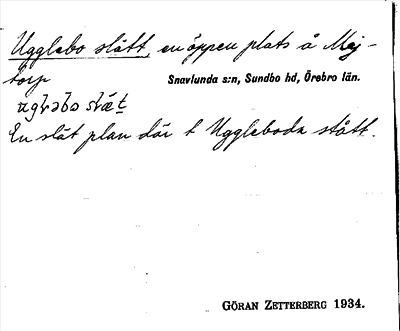 Ugglebo slätt, en öppen plats å Mej-
torp
Snavlunda s:n, Sundbo hd, Örebro län.
En slät plan där t Uggleboda stått.
GÖRAN ZETTERBERG 1934.